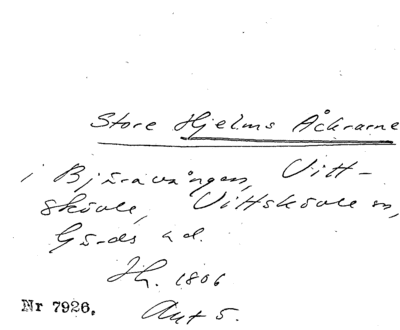 Store Hjelms Åckrarne
i Bjäravången, Vitt-
skövle, Vittskövle sn,
Gärds hd.
Sh. 1806
Akt 5.
Nr 7926.